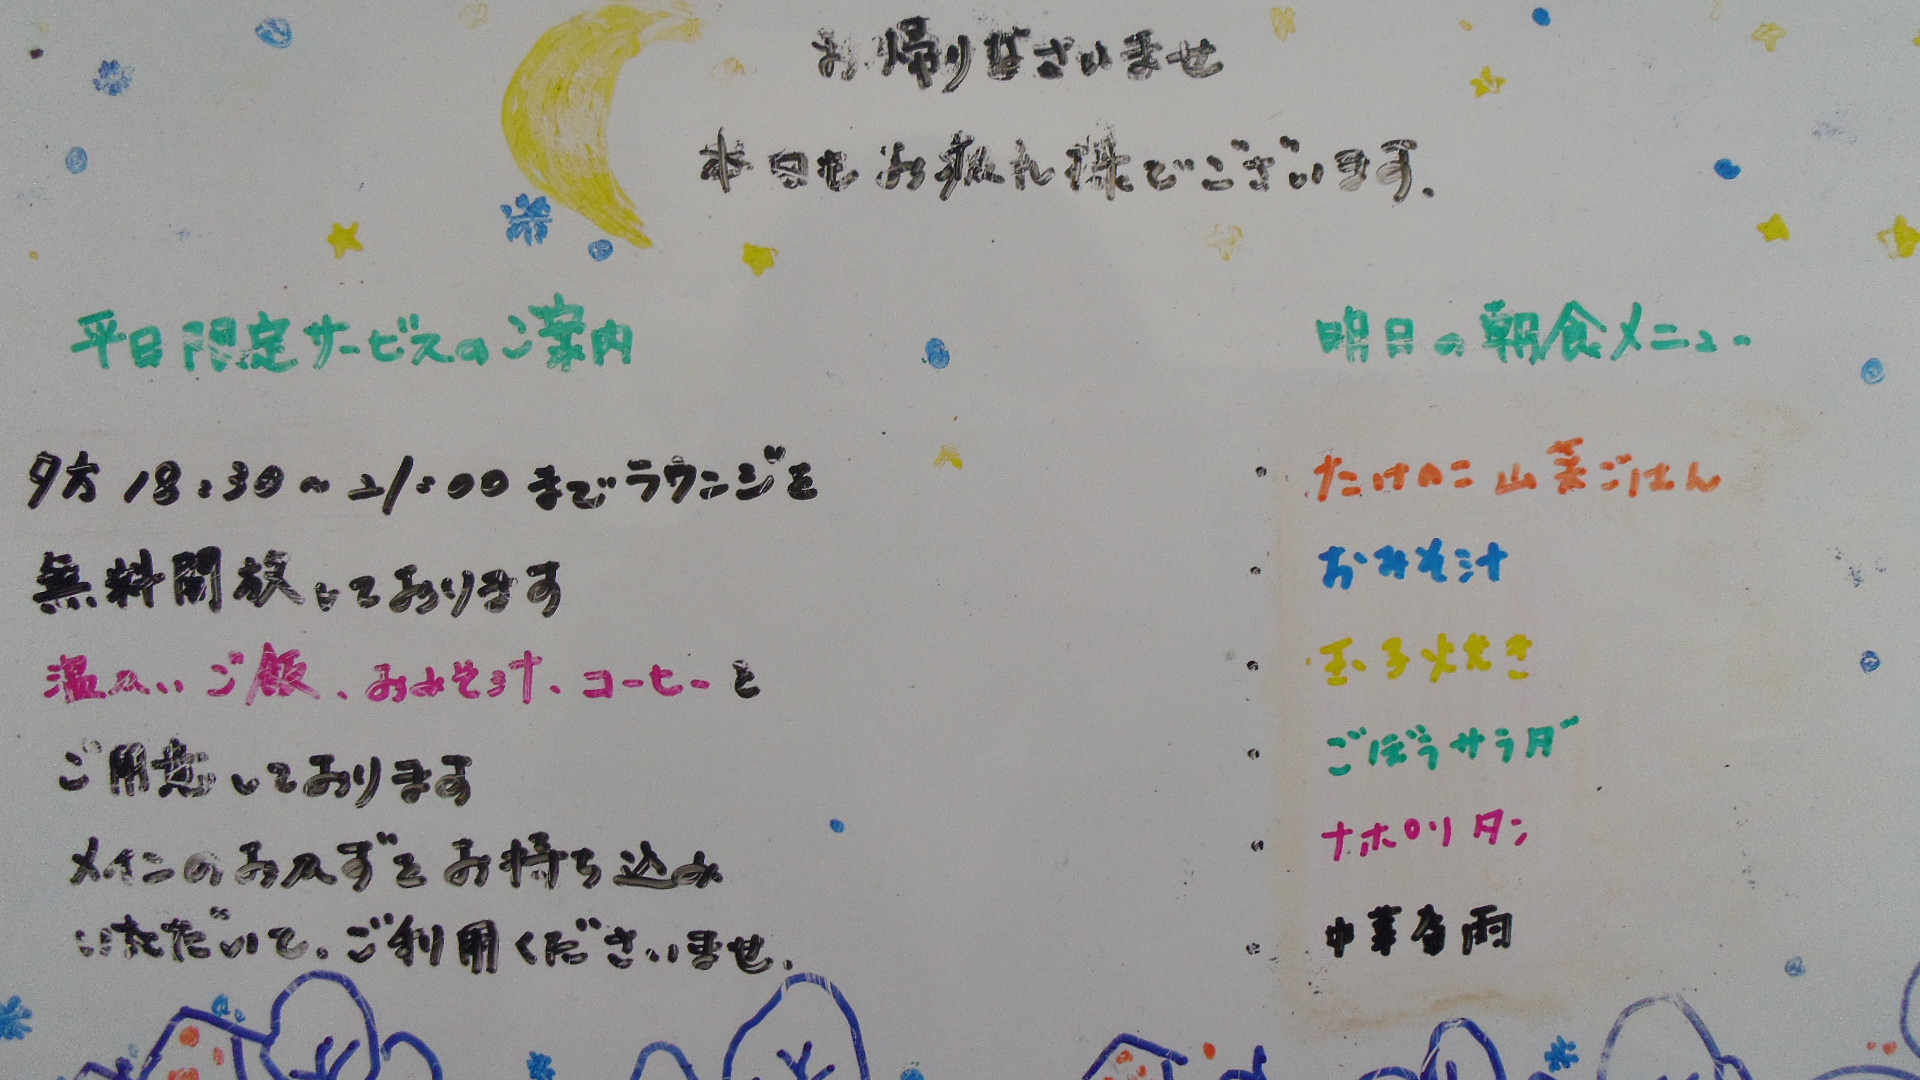 お帰りなさいませ
本日もお疲れ様でございます.
平日限定サービスのご案内
夕方 18:30～21:00 までラウンジを
無料開放しております
温かいご飯、おみそ汁、コーヒーを
ご用意しております
メインのおかずをお持ち込み
いただいて、ご利用くださいませ.
明日の朝食メニュー
・たけのこ山菜ごはん
・おみそ汁
・玉子焼き
・ごぼうサラダ
・ナポリタン
・中華春雨